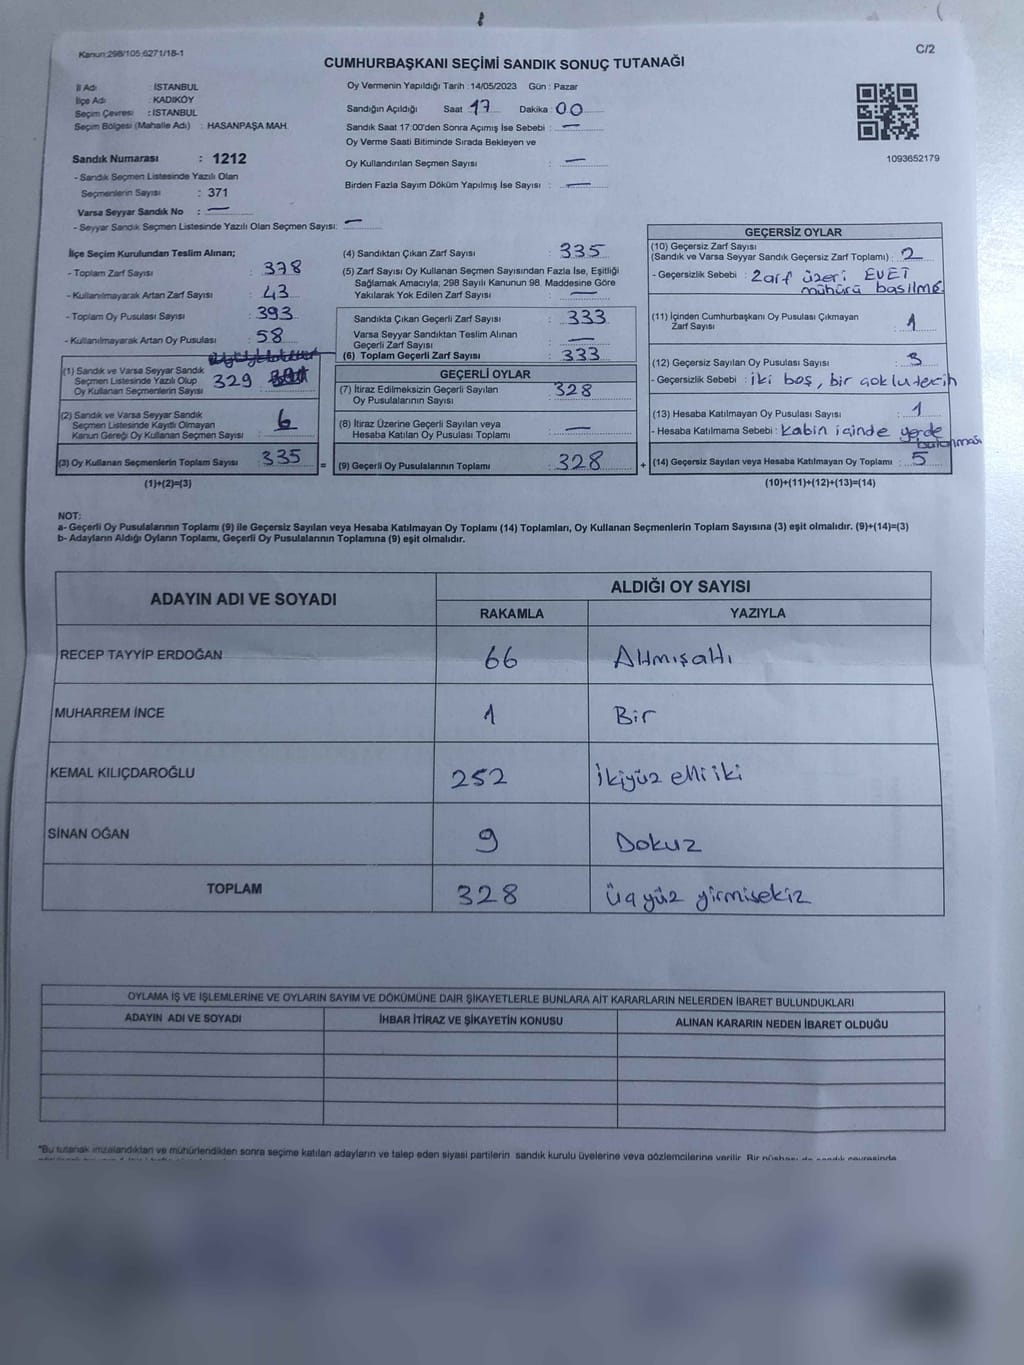 Kanun:298/105:6271/18-1
C/2
CUMHURBAŞKANI SEÇİMİ SANDIK SONUÇ TUTANAĞI
İl Adı : İSTANBUL
İlçe Adı : KADIKÖY
Seçim Çevresi : İSTANBUL
Seçim Bölgesi (Mahalle Adı) : HASANPAŞA MAH.
Sandık Numarası : 1212
- Sandık Seçmen Listesinde Yazılı Olan
Seçmenlerin Sayısı : 371
Varsa Seyyar Sandık No : —
- Seyyar Sandık Seçmen Listesinde Yazılı Olan Seçmen Sayısı: —
Oy Vermenin Yapıldığı Tarih : 14/05/2023 Gün : Pazar
Sandığın Açıldığı Saat 17 Dakika : 00
Sandık Saat 17:00'den Sonra Açımış İse Sebebi : —
Oy Verme Saati Bitiminde Sırada Bekleyen ve
Oy Kullandırılan Seçmen Sayısı : —
Birden Fazla Sayım Döküm Yapılmış İse Sayısı : —
1093652179
İlçe Seçim Kurulundan Teslim Alınan;
- Toplam Zarf Sayısı : 378
- Kullanılmayarak Artan Zarf Sayısı : 43
- Toplam Oy Pusulası Sayısı : 393
- Kullanılmayarak Artan Oy Pusulası : 58
(1) Sandık ve Varsa Seyyar Sandık
Seçmen Listesinde Yazılı Olup
Oy Kullanan Seçmenlerin Sayısı 329
(2) Sandık ve Varsa Seyyar Sandık
Seçmen Listesinde Kayıtlı Olmayan
Kanun Gereği Oy Kullanan Seçmen Sayısı : 6
(3) Oy Kullanan Seçmenlerin Toplam Sayısı : 335
(1)+(2)=(3)
(4) Sandıktan Çıkan Zarf Sayısı : 335
(5) Zarf Sayısı Oy Kullanan Seçmen Sayısından Fazla İse, Eşitliği
Sağlamak Amacıyla; 298 Sayılı Kanunun 98. Maddesine Göre
Yakılarak Yok Edilen Zarf Sayısı : —
Sandıkta Çıkan Geçerli Zarf Sayısı : 333
Varsa Seyyar Sandıktan Teslim Alınan
Geçerli Zarf Sayısı : —
(6) Toplam Geçerli Zarf Sayısı : 333
GEÇERLİ OYLAR
(7) İtiraz Edilmeksizin Geçerli Sayılan
Oy Pusulalarının Sayısı : 328
(8) İtiraz Üzerine Geçerli Sayılan veya
Hesaba Katılan Oy Pusulası Toplamı : —
= (9) Geçerli Oy Pusulalarının Toplamı : 328
GEÇERSİZ OYLAR
(10) Geçersiz Zarf Sayısı
(Sandık ve Varsa Seyyar Sandık Geçersiz Zarf Toplamı) : 2
- Geçersizlik Sebebi : Zarf üzeri EVET
mühürü basılme
(11) İçinden Cumhurbaşkanı Oy Pusulası Çıkmayan
Zarf Sayısı : 1
(12) Geçersiz Sayılan Oy Pusulası Sayısı : 3
- Geçersizlik Sebebi : iki boş, bir çoklu tercih
(13) Hesaba Katılmayan Oy Pusulası Sayısı : 1
- Hesaba Katılmama Sebebi : Kabin içinde yerde
bulunması
+ (14) Geçersiz Sayılan veya Hesaba Katılmayan Oy Toplamı : 5
(10)+(11)+(12)+(13)=(14)
NOT:
a- Geçerli Oy Pusulalarının Toplamı (9) ile Geçersiz Sayılan veya Hesaba Katılmayan Oy Toplamı (14) Toplamları, Oy Kullanan Seçmenlerin Toplam Sayısına (3) eşit olmalıdır. (9)+(14)=(3)
b- Adayların Aldığı Oyların Toplamı, Geçerli Oy Pusulalarının Toplamına (9) eşit olmalıdır.
ADAYIN ADI VE SOYADI ALDIĞI OY SAYISI
RAKAMLA YAZIYLA
RECEP TAYYİP ERDOĞAN 66 Altmışaltı
MUHARREM İNCE 1 Bir
KEMAL KILIÇDAROĞLU 252 İkiyüz elli iki
SİNAN OĞAN 9 Dokuz
TOPLAM 328 üçyüz yirmisekiz
OYLAMA İŞ VE İŞLEMLERİNE VE OYLARIN SAYIM VE DÖKÜMÜNE DAİR ŞİKAYETLERLE BUNLARA AİT KARARLARIN NELERDEN İBARET BULUNDUKLARI
ADAYIN ADI VE SOYADI İHBAR İTİRAZ VE ŞİKAYETİN KONUSU ALINAN KARARIN NEDEN İBARET OLDUĞU
*Bu tutanak imzalandıktan ve mühürlendikten sonra seçime katılan adayların ve talep eden siyasi partilerin sandık kurulu üyelerine veya gözlemcilerine verilir. Bir nüshası da sandık çevresinde